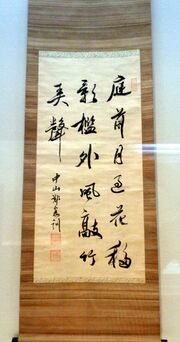 庭前月過花移
影檻外風敲竹
奏聲
中山鄭嘉訓